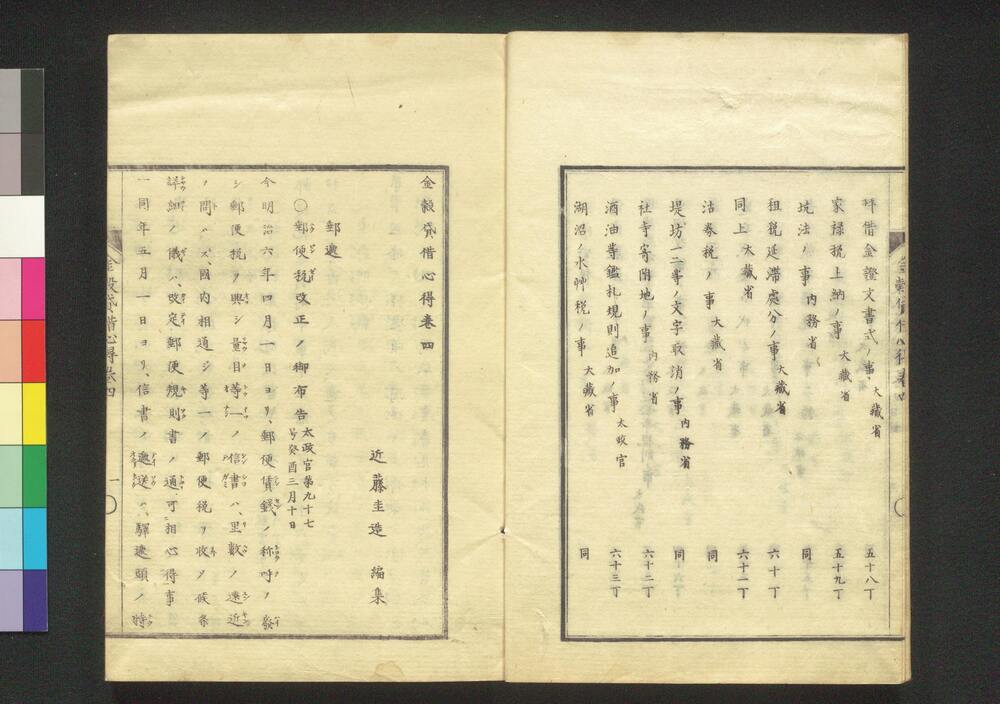 拜借金證文書式ノ事 大藏省 五十八丁
家祿税上納ノ事 大藏省 五十九丁
坑法ノ事 内務省 同
租税延滯處分ノ事 大藏省 六十丁
同上 大藏省 六十一丁
沽券税ノ事 大藏省 同
堤坊一二等ノ文字取消ノ事 内務省 同
社寺寄附地ノ事 内務省 六十二丁
酒油等鑑札規則追加ノ事 太政官 六十三丁
湖沼ノ水艸税ノ事 大藏省 同
金穀貸借心得卷四
近藤圭造 編集
郵遞
○郵便税改正ノ御布告 太政官第九十七号癸酉三月十日
今明治六年四月一日ヨリ、郵便賃錢ノ称呼ヲ廢
シ郵便税ヲ興シ量目等一ノ信書ハ、里數ノ遠近
ヲ問ハス、國内相通シ等一ノ郵便税ヲ收メ候条
詳細ノ儀ハ、改定郵便規則書ノ通可相心得事
一同年五月一日ヨリ、信書ノ遞送ハ、驛遞頭ノ特
金穀貸借心得卷四
一